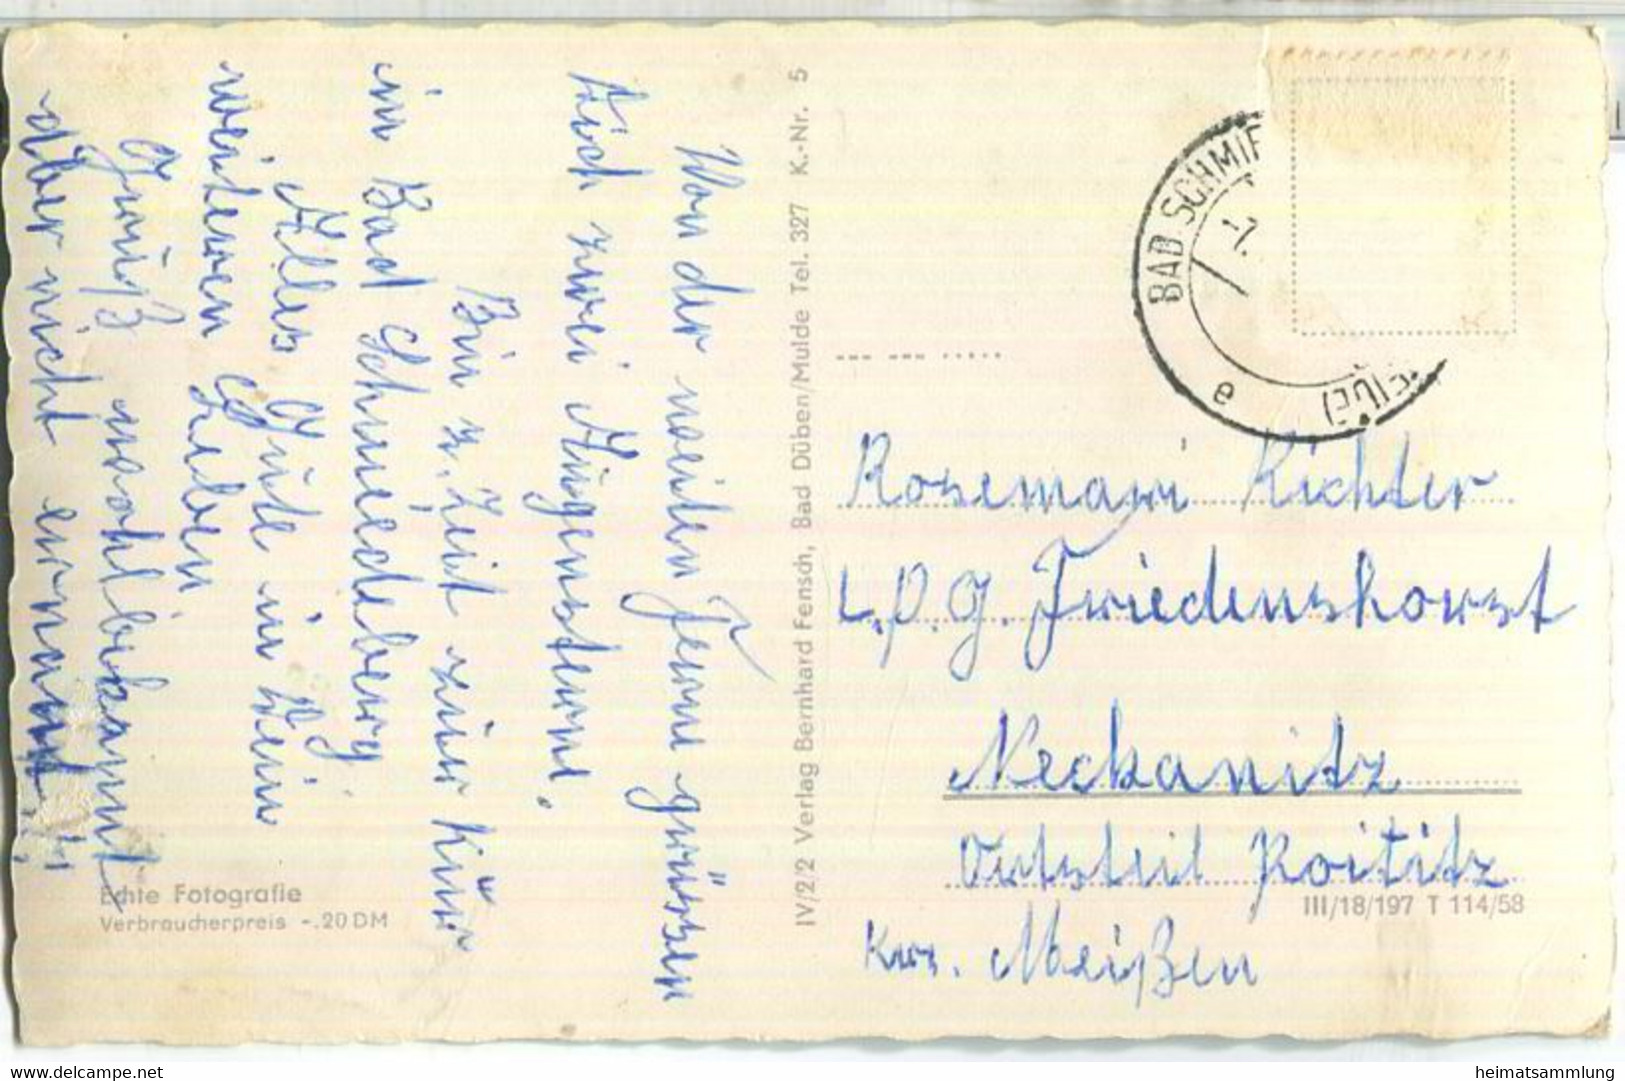 Von der weiten Ferne grüssen
Dich zwei Augensterne.
Bin z. Zeit zur Kur
in Bad Schmiedeberg
Alles Gute in Dein
weiteren Leben
Gruß wohlbekannt
aber nicht ernannt.
Echte Fotografie
Verbraucherpreis -.20 DM
IV/2/2 Verlag Bernhard Fensch, Bad Düben/Mulde Tel. 327 K.-Nr. 5
BAD SCHMIE
e
Rosemarie Richter
L.P.G. Friedenshorst
Neckanitz
Ortsteil Roititz
III/18/197 T 114/58
Krs. Meißen
heimatsammlung.com